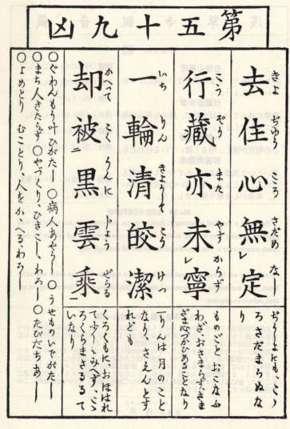 第五十九凶
去住心無定
きよぢゆうさだめなし
ぢうしよにも、こゝ
ろさだまらぬな
り
行藏亦未寧
こうざうまたやすからず
ものごと おこなふ
わざ、おさまらず、さま
ざま心づかひあることなり
一輪清皎潔
いちりんきよふしてこうけつ
一りんは月のこと
なり、さえんとす
れども
却被黒雲乗
かへつてこくうんにじようぜらる
くろくもに、おほはれ
て少しもみへず、こゝ
ろくらまさるゝて
いなり
○ぐわんもう叶ひがたし ○病人あやうし ○うせものいでがたし
○まち人きたらず ○やづくり、ひきこし、わろし ○たびだちあし
○よめとり むことり、人をかゝへるわろし